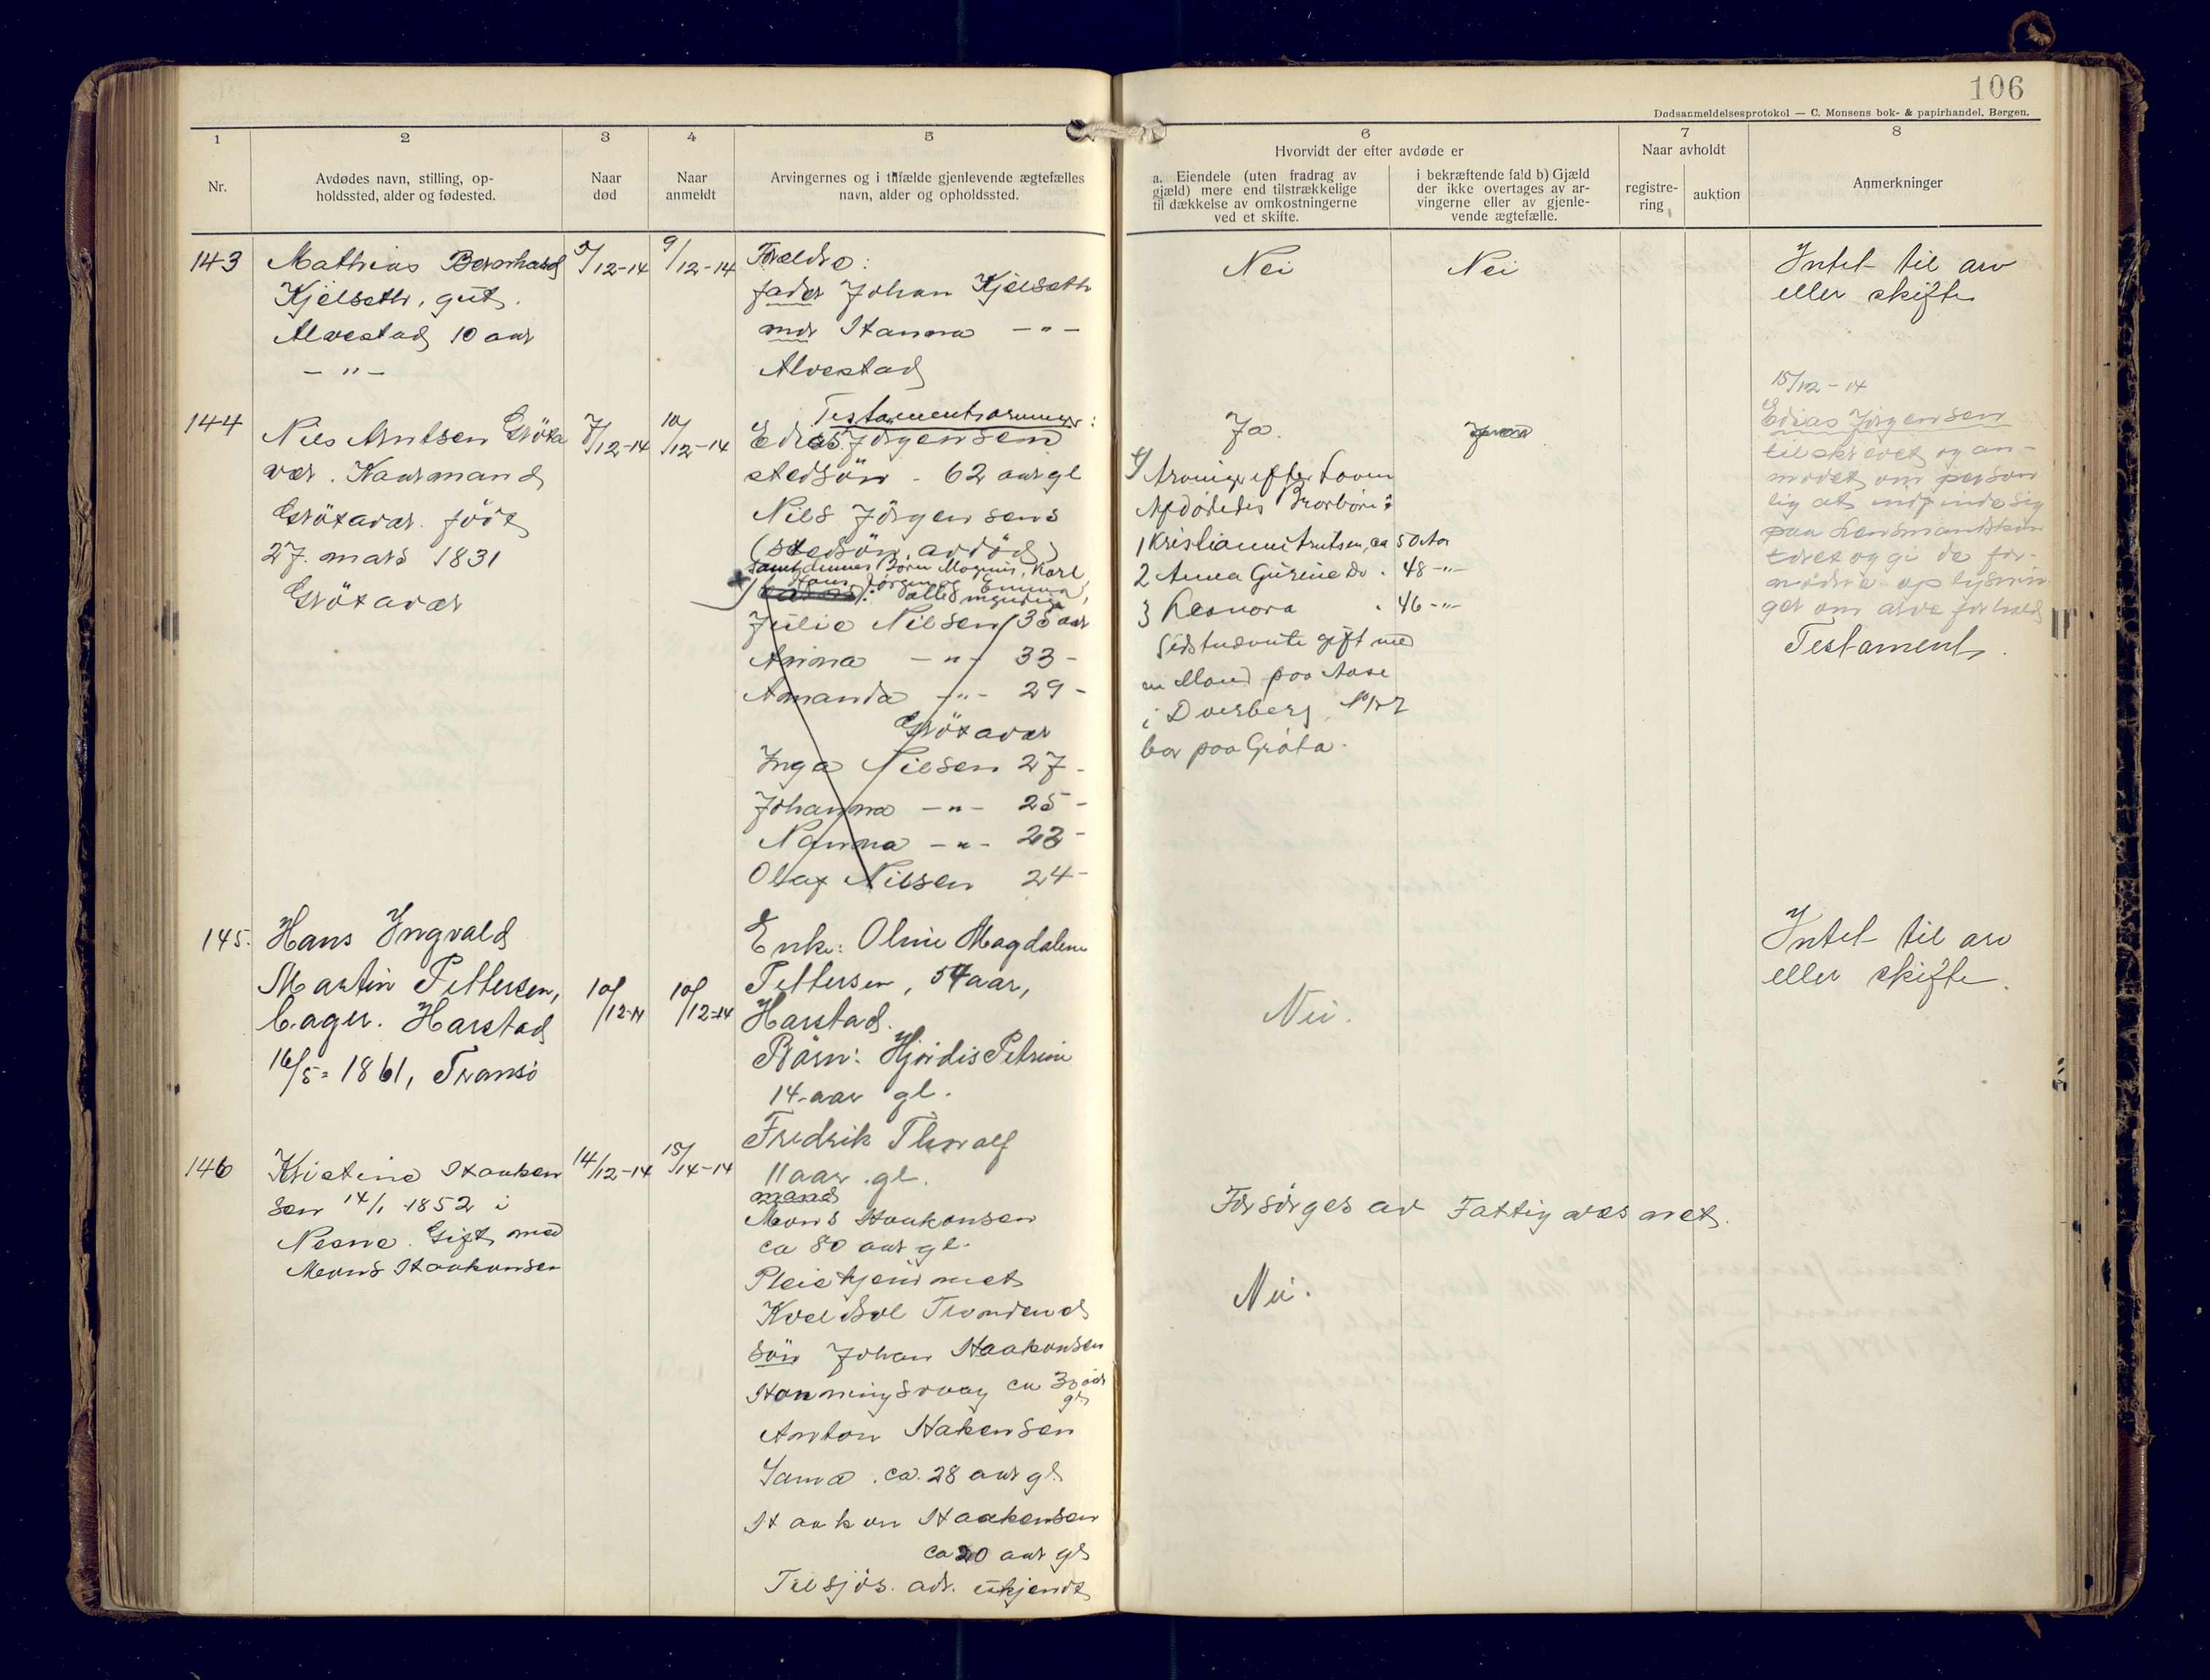 106
Dødsanmeldelsesprotokol — C. Monsens bok- & papirhandel, Bergen.
1
2
3
4
5
6
7
8
Nr.
Avdødes navn, stilling, op-
holdssted, alder og fødested.
Naar
død
Naar
anmeldt
Arvingernes og i tilfælde gjenlevende ægtefælles
navn, alder og opholdssted.
Hvorvidt der efter avdøde er
a. Eiendele (uten fradrag av
gjæld) mere end tilstrækkelige
til dækkelse av omkostningerne
ved et skifte.
i bekræftende fald b) Gjæld
der ikke overtages av ar-
vingerne eller av gjenle-
vende ægtefælle.
Naar avholdt
registre-
ring
auktion
Anmerkninger
143
Mathias Bernhard
Kjelseth, gut.
Alvestad 10 aar
— " —
/12-14
9/12-14
Forældre:
fader Johan Kjelseth
mor Hanna — " —
Alvestad
Nei
Nei
Intet til arv
eller skifte
144
Nils Arntsen Gröta
vær. Kaarmand
Grötavær. född
27. mars 1831
Grötavær
7/12-14
10/12-14
Testamentsarvinger:
Edias Jörgensen
stedsön - 62 aar gl
Nils Jörgensens
(stedsön, avdöd)
samt dennes Børn Magnus, Karl,
Hans, Jørgen og Emma,
alle myndige
Julie Nilsen 35 aar
Anna — " — 33 -
Amanda — " — 29 -
Grötavær
Inga Nilsen 27 -
Johanna — " — 25 -
Nanna — " — 22 -
Olaf Nilsen 24 -
Ja.
Arvinger efter Loven
Afdødedes Brorbørn:
1 Kristianne Arntsen, ca 50 Aar
2 Anna Gurine Do . 48 - " -
3 Leonora . 46 - " -
Sidstnævnte gift med
en Mand paa Aase
i Dverberg, No 1 & 2
bor paa Gröta.
15/12-14
Edias Jörgensen
tilskrevet og an-
modet om person
lig at indfinde sig
paa Lensmandskon
toret og gi de for-
nødne oplysnin
ger om arveforhold
Testament.
145.
Hans Ingvald
Martin Pettersen,
Harstad
16/5 - 1861, Tromsö
10/12-14
10/12-14
Enke: Oline Magdalene
Pettersen, 54 aar,
Harstad.
Börn: Hjördis Petrine
14 aar gl.
Fredrik Thoralf
11 aar gl.
Nei.
Intet til arv
eller skifte.
146
Kristine Haakon
sen 14/1 1852 i
Nesna. Gift med
Mons Haakonsen
14/12-14
15/14-14
mand
Mons Haakonsen
ca 80 aar gl.
Pleiehjemmet
Kveldsol Trondenes
sön Johan Haakonsen
Honningsvaag ca 30 aar
gl
Anton Hakonsen
Sama . ca. 28 aar gl
Haakon Haakonsen
ca 20 aar gl
Tilsjös. adr. ukjendt
Forsörges av Fattigvæsnet.
Nei.